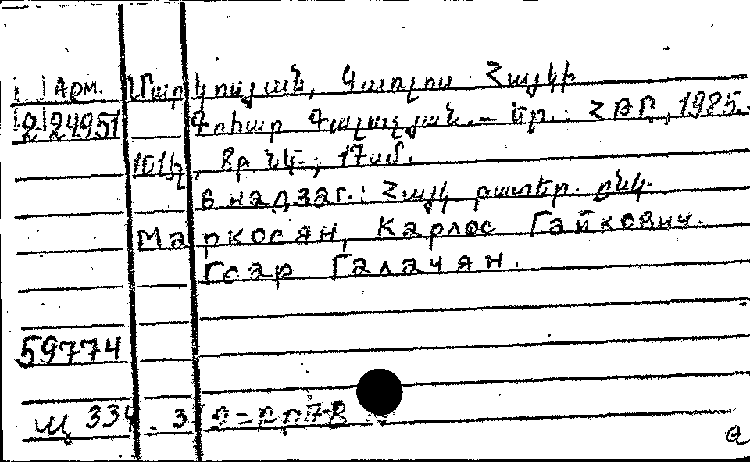 Арм. Մարկոսյան, Կառլոս Հայկի
2-24951 Գոհար Գալաչյան.– Եր.: ՀԹԸ, 1985.
101էջ, 8թ նկ.; 17սմ.
В надзаг.: Հայկ թատեր. ընկ.
Маркосян, Карлос Гайкович.
Гоар Галачян.
59774
Щ 334.3